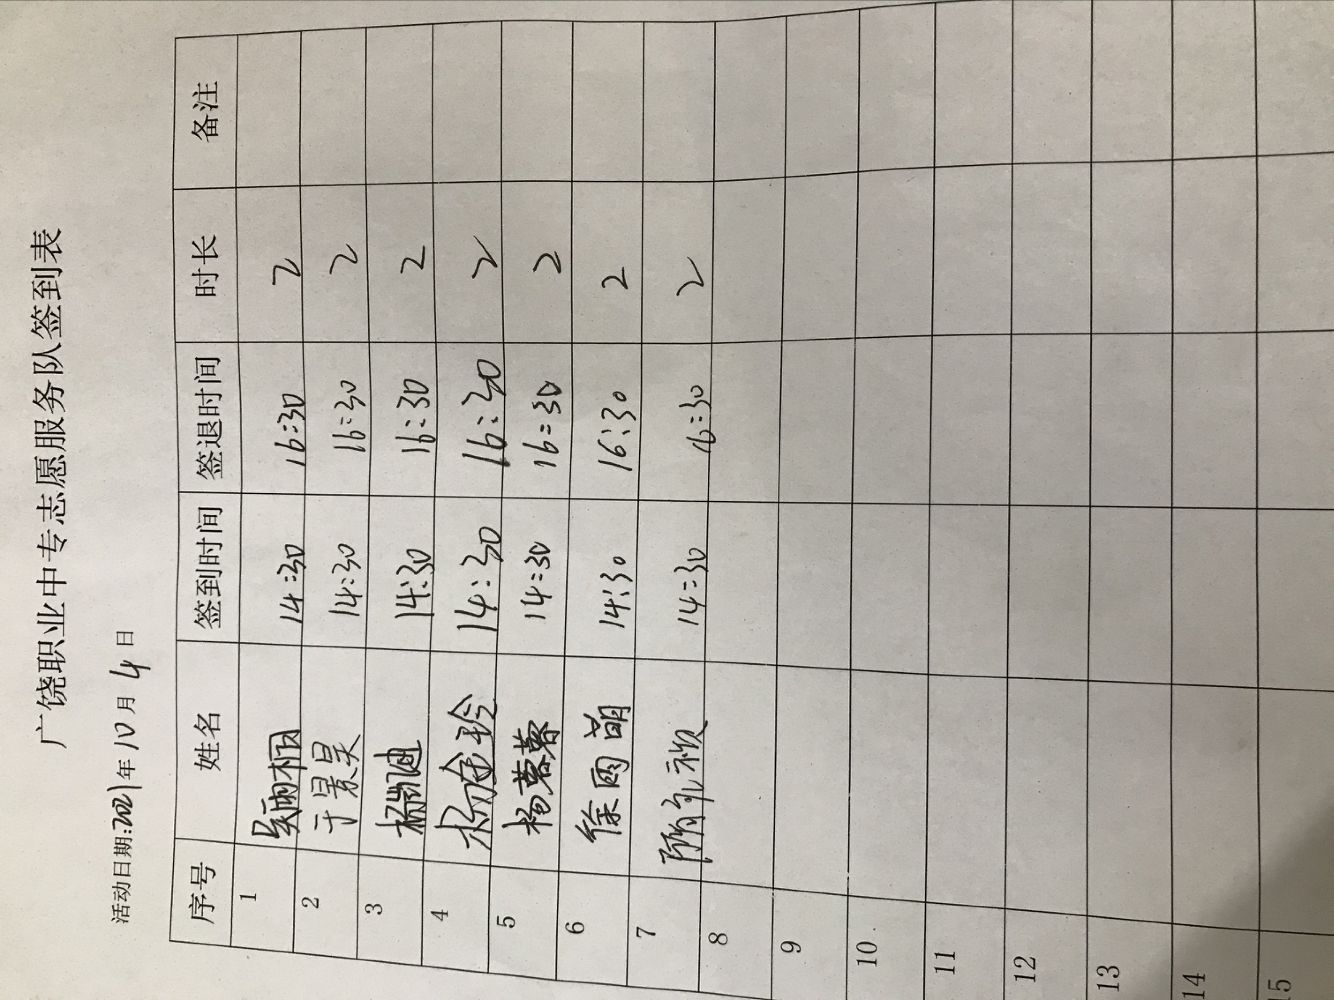 广饶职业中专志愿服务队签到表
活动日期:2021年10月4日
序号 姓名 签到时间 签退时间 时长 备注
1 14:30 16:30 2
2 于景昊 14:30 16:30 2
3 杨凯迪 14:30 16:30 2
4 杨金玲 14:30 16:30 2
5 杨慕蓉 14:30 16:30 2
6 徐雨萌 14:30 16:30 2
7 14:30 16:30 2
8
9
10
11
12
13
14
5